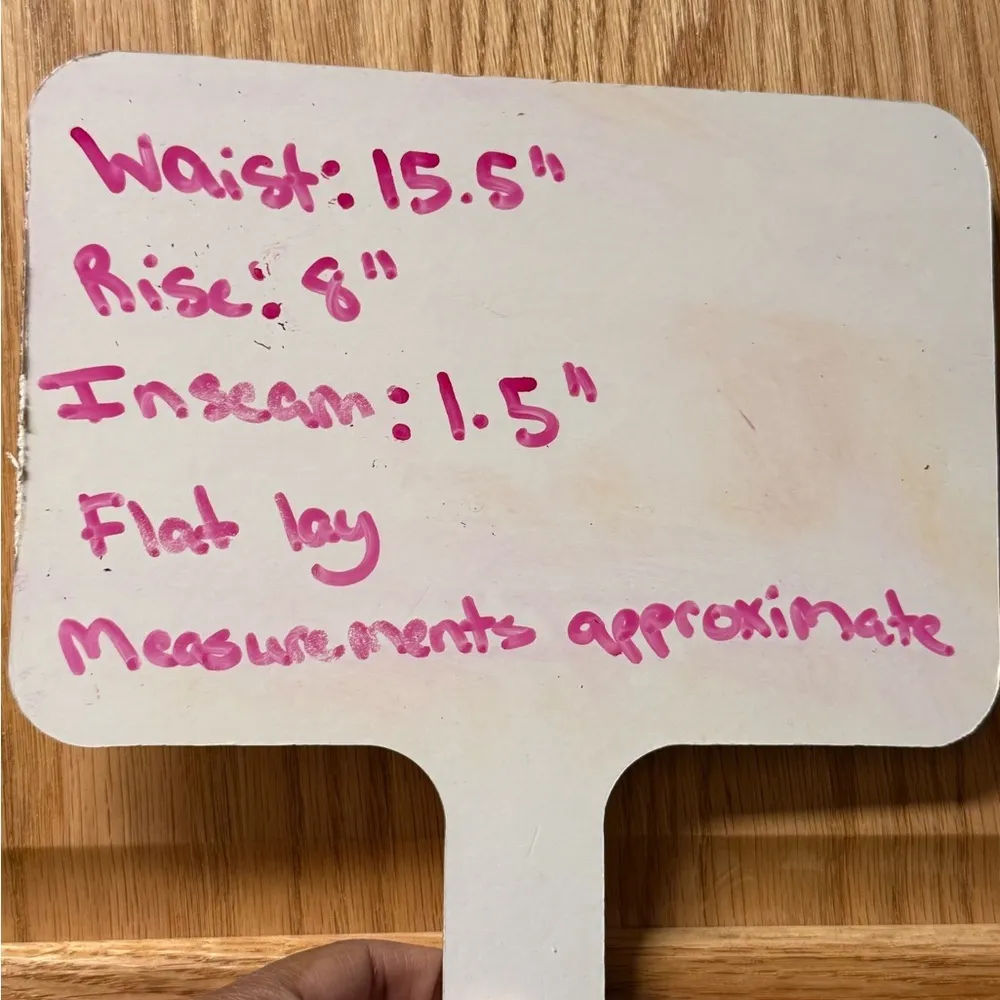 Waist: 15.5"
Rise: 8"
Inseam: 1.5"
Flat lay
Measurements approximate